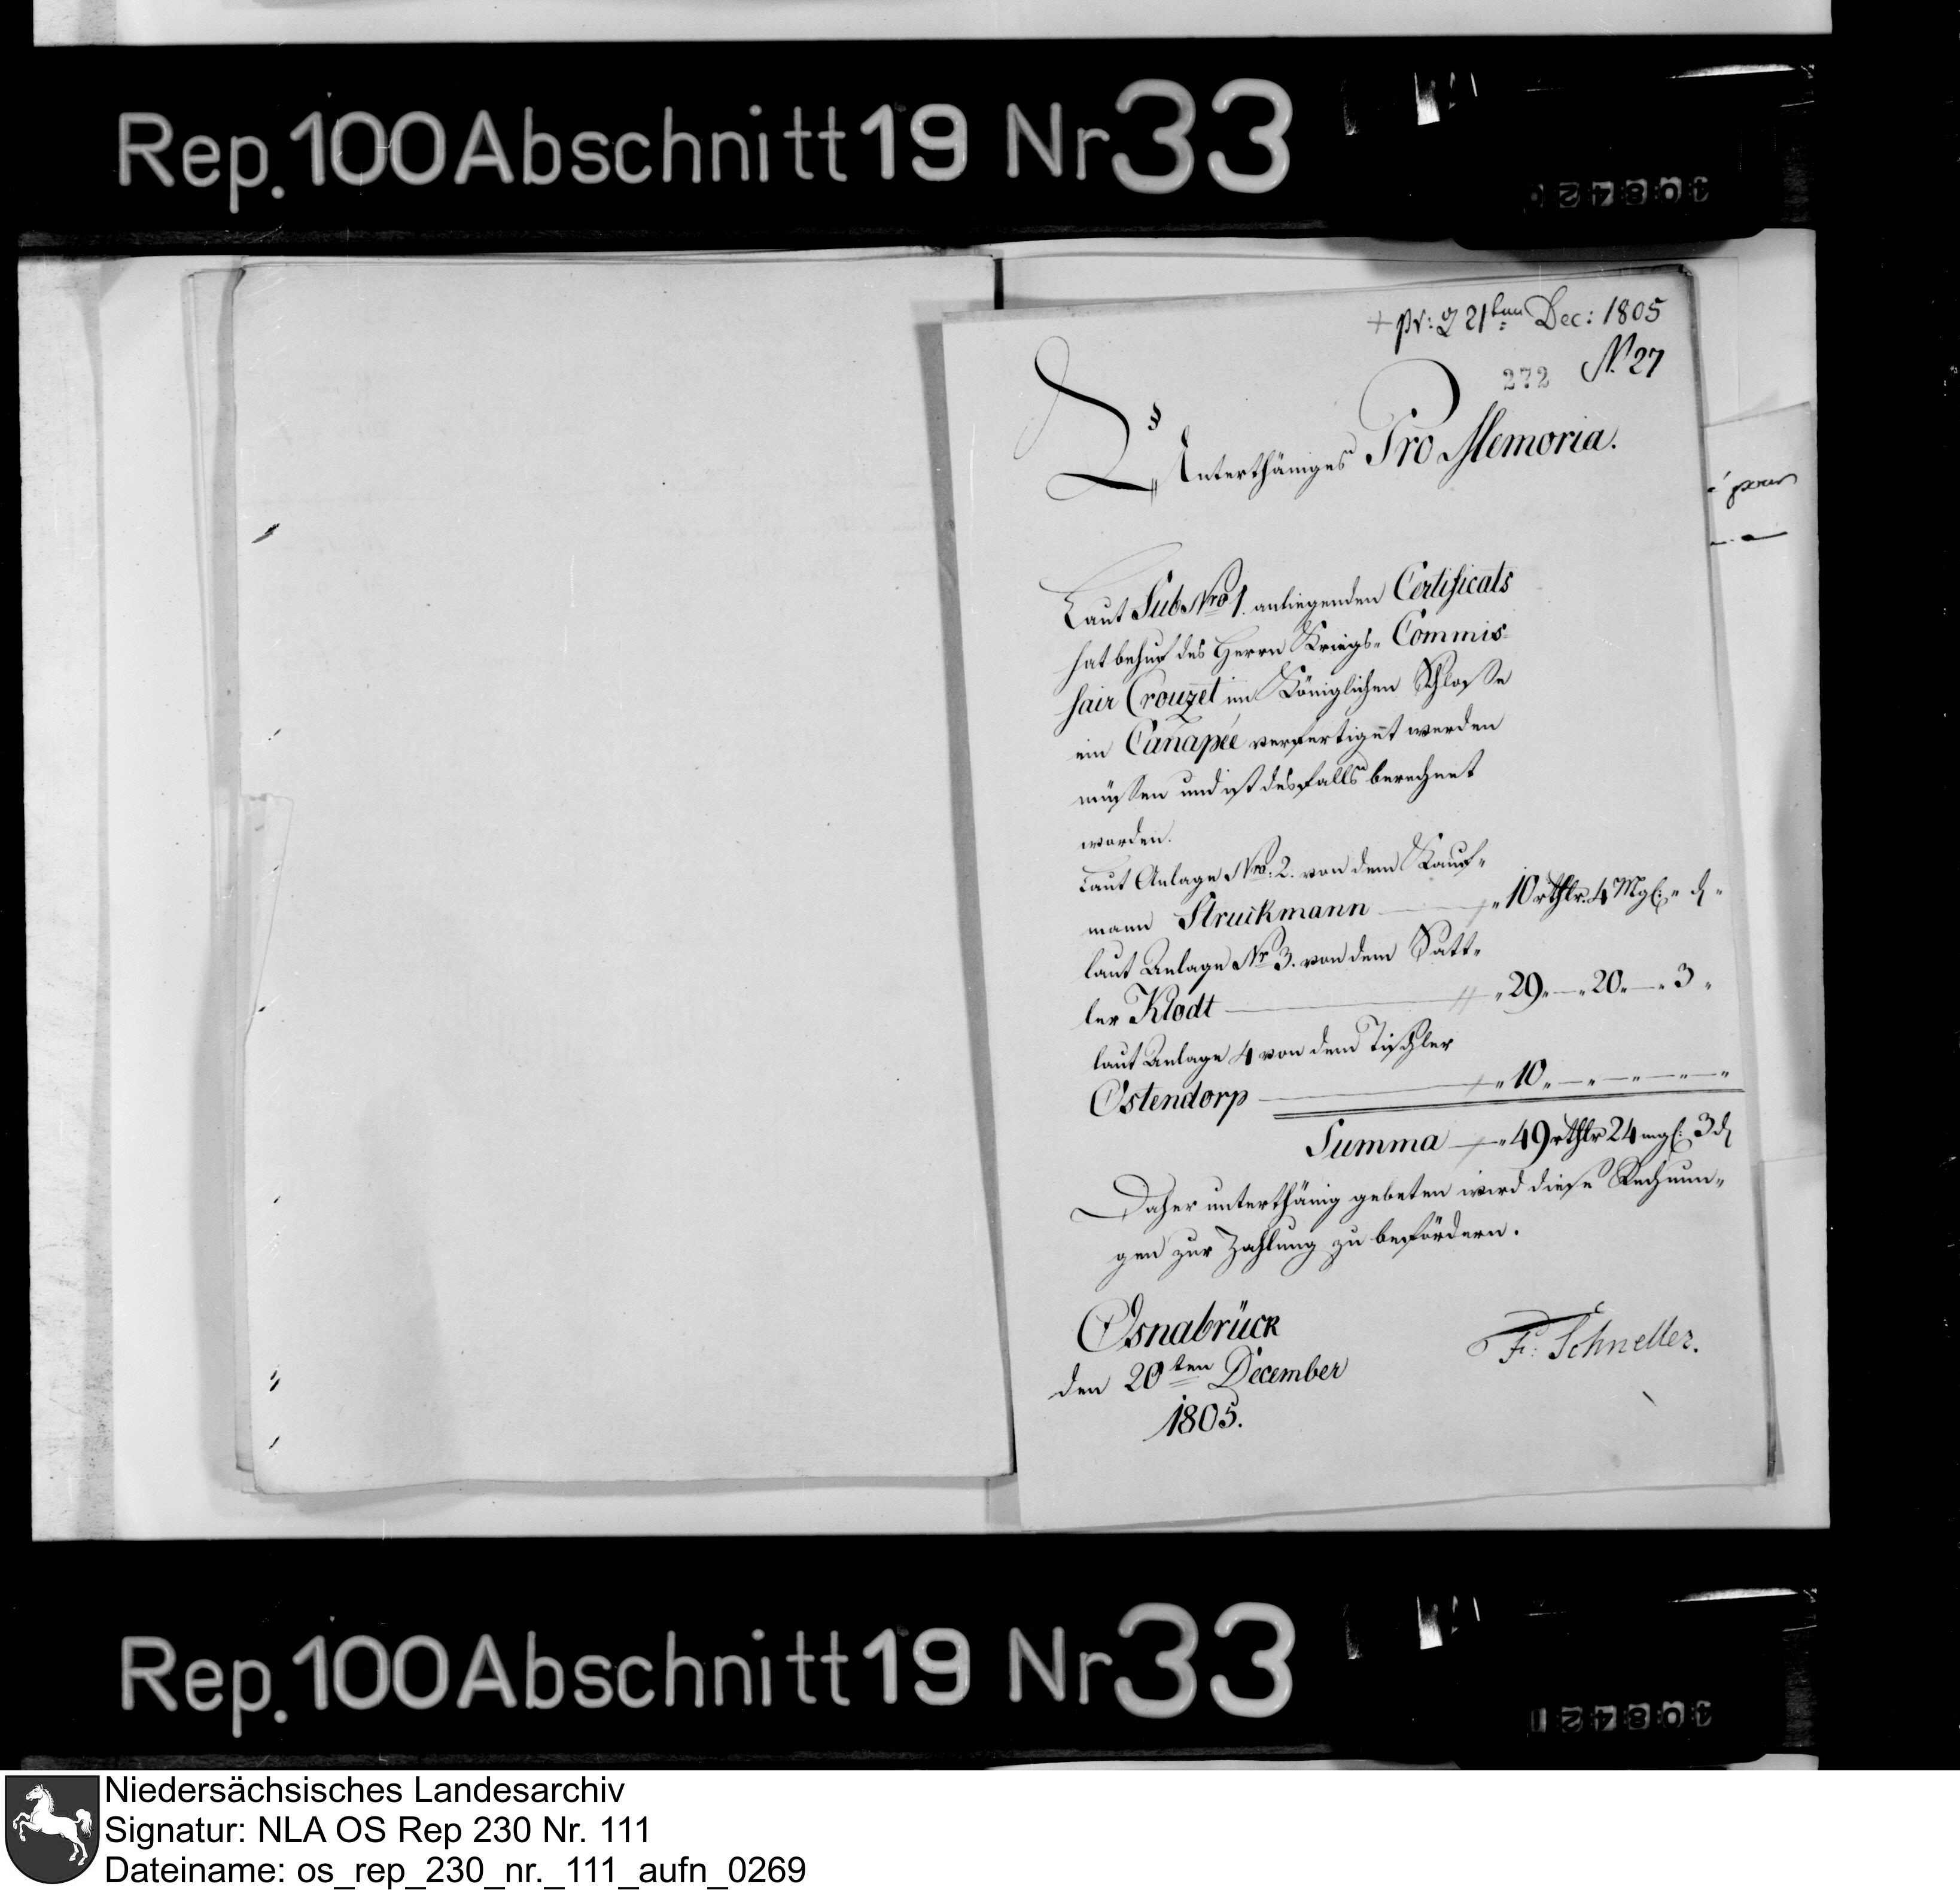 Rep. 100 Abschnitt 19 Nr 33
pr: d 21ten Dec: 1805
272 N. 27
Unterthäniges Pro Memoria.
Laut Sub Nro 1. anliegenden Certificats
hat behuf des Herrn Kriegs- Commis-
sair Crouzet im Königlichen Schlosse
ein Canapée verfertiget werden
müssen und ist desfalls berechnet
worden.
Laut Anlage Nro: 2. von dem Kauf-
mann Struckmann „ 10 rthlr. 4 Mgl: „ d „
laut Anlage Nr 3. von dem Satt-
ler Klodt „ 29 „ — „ 20 „ — „ 3 „
laut Anlage 4 von dem Tischler
Ostendorp „ 10 „ — „ — „ — „ — „
Summa — „ 49 rthlr 24 mgl: 3 d
Daher unterthänig gebeten wird diese Rechnun-
gen zur Zahlung zu befördern.
Osnabrück
den 20ten December
1805.
F: Schneller.
pour
Rep. 100 Abschnitt 19 Nr 33
Niedersächsisches Landesarchiv
Signatur: NLA OS Rep 230 Nr. 111
Dateiname: os_rep_230_nr._111_aufn_0269